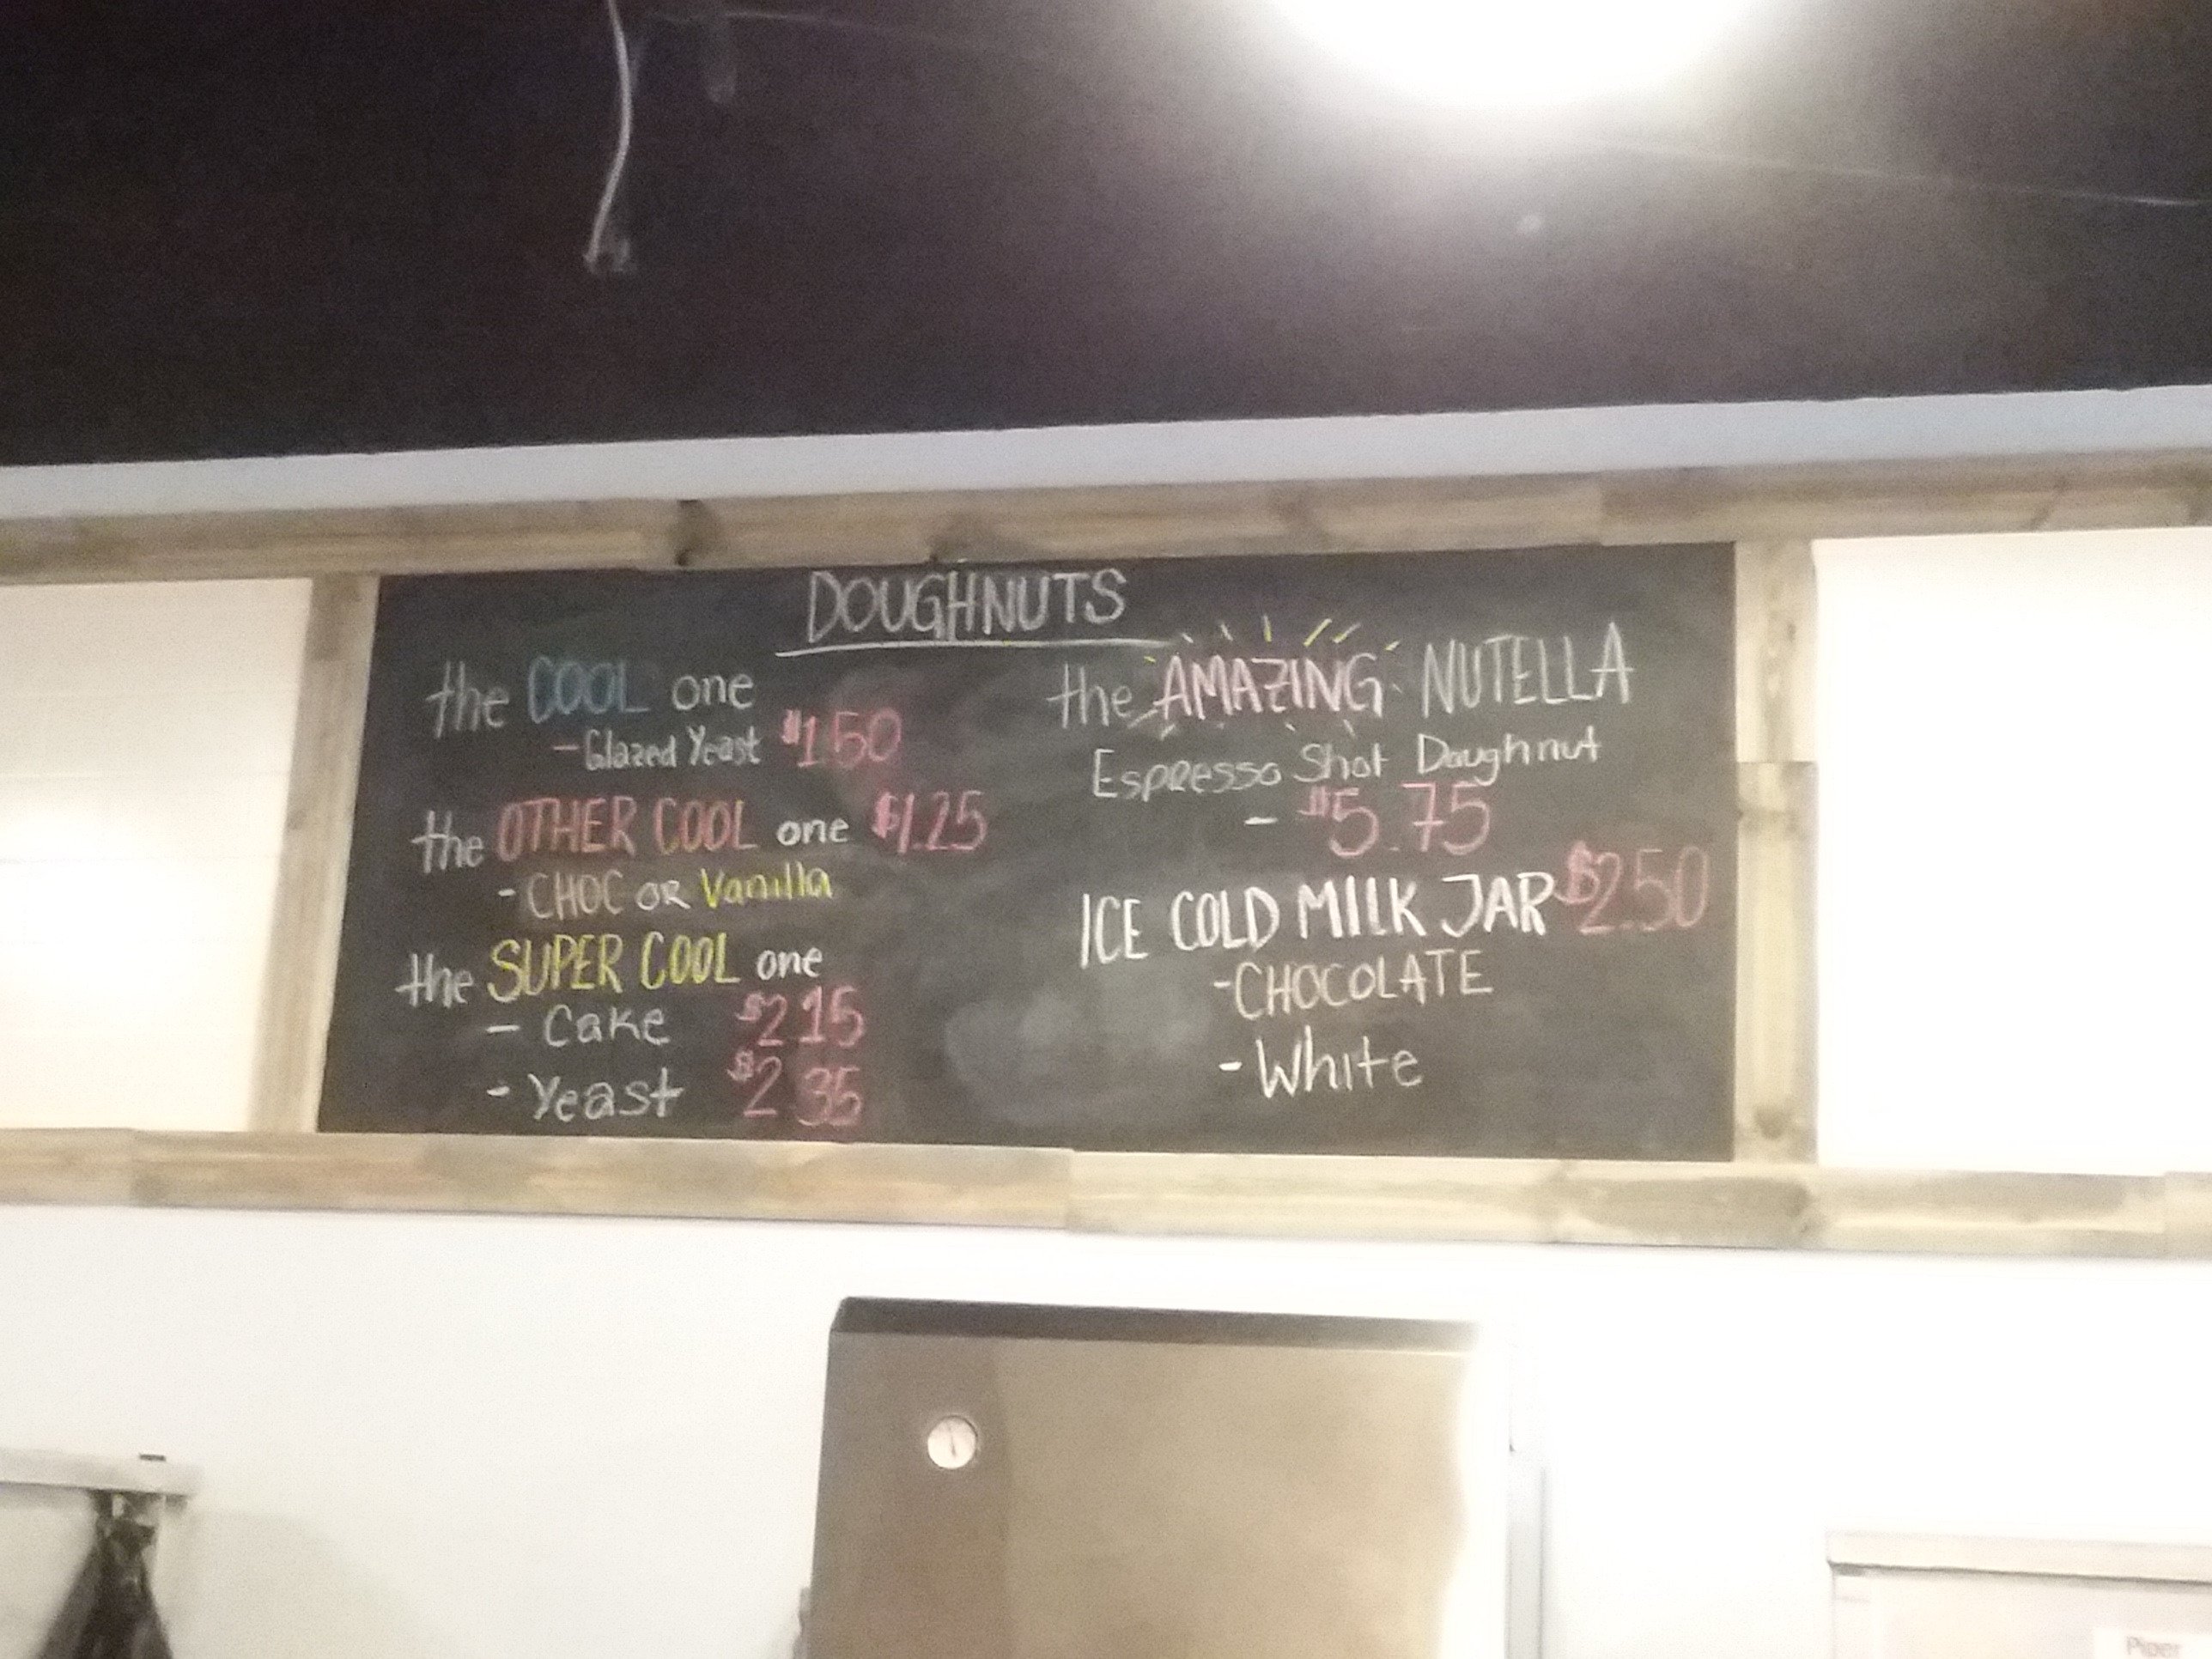 DOUGHNUTS
the COOL one
- Glazed Yeast $1.50
the OTHER COOL one $1.25
- CHOC OR Vanilla
the SUPER COOL one
- Cake $2.15
- Yeast $2.35
the AMAZING NUTELLA
Espresso Shot Doughnut
- $5.75
ICE COLD MILK JAR $2.50
- CHOCOLATE
- White
Piper